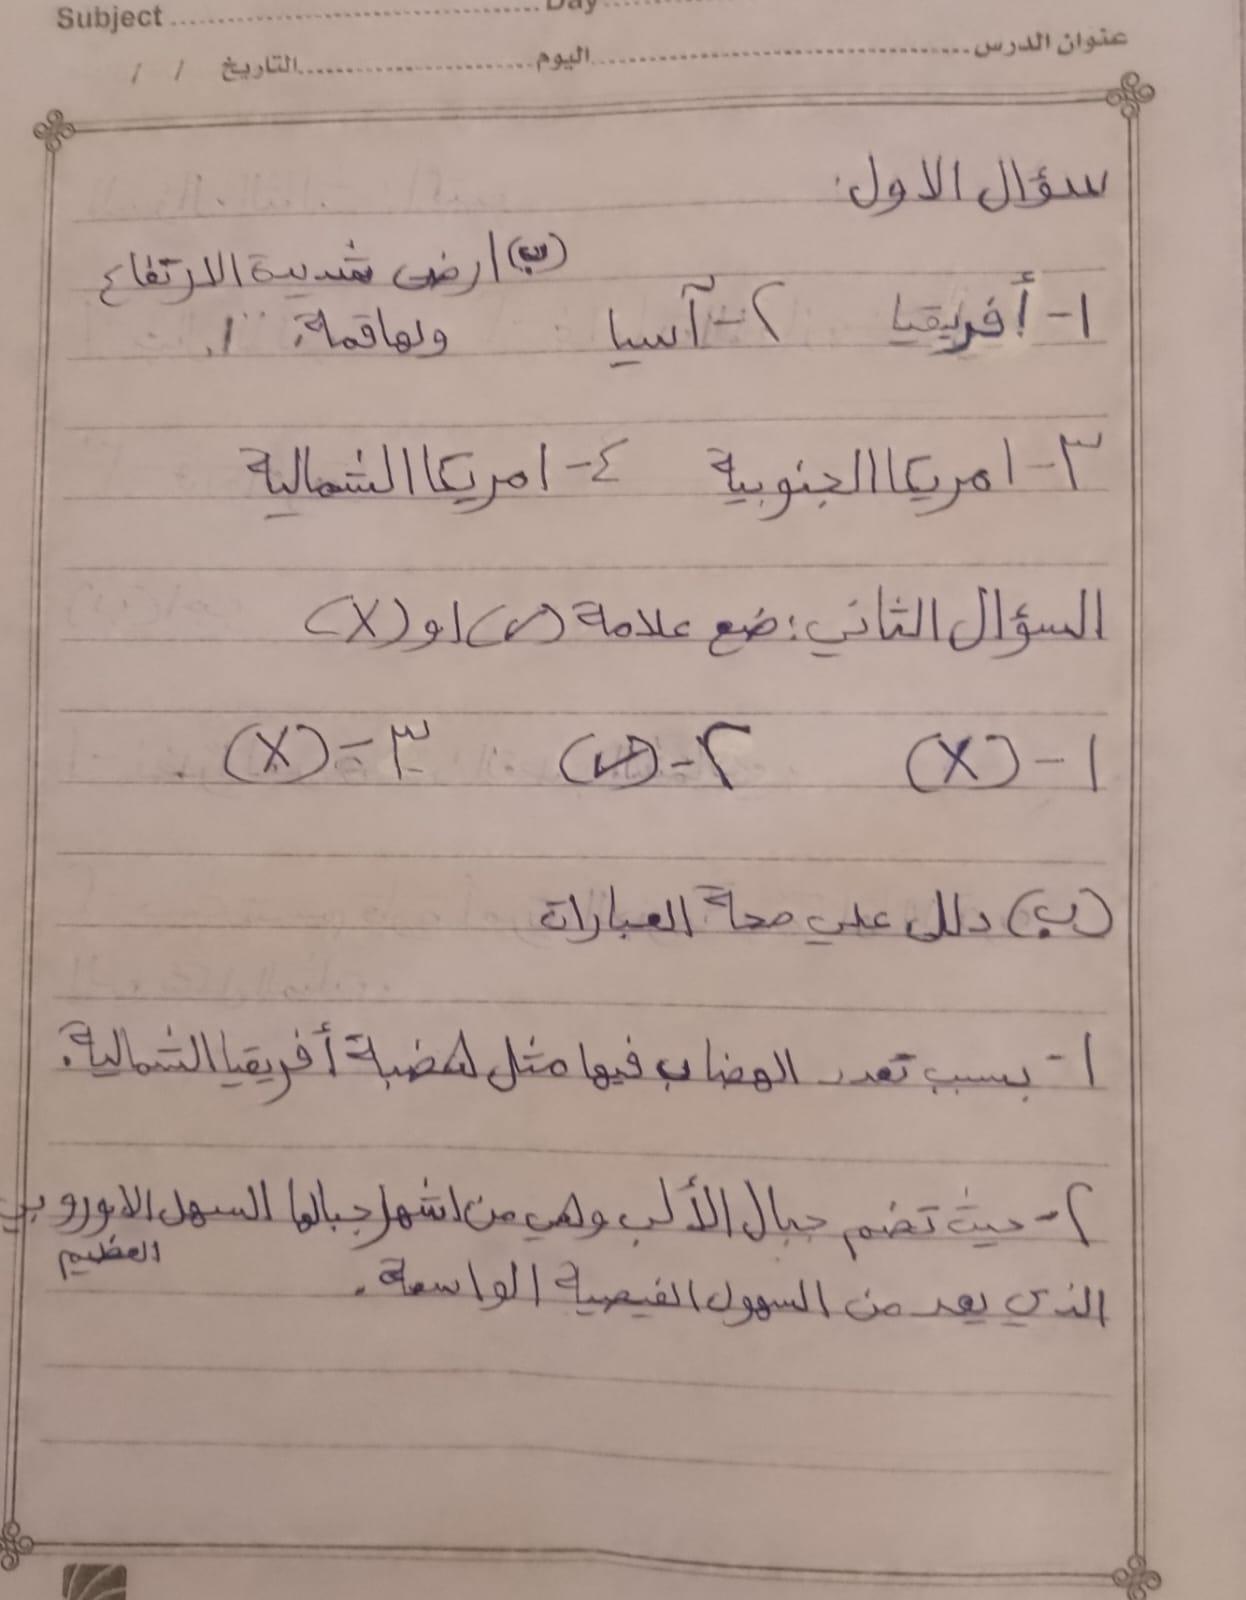 Subject ........ Day ........
عنوان الدرس ........ اليوم ........ التاريخ / /
سؤال الاول:
(ب) ارض شديدة الارتفاع
١- أفريقيا ٢- آسيا ولها قمة.
٣- امريكا الجنوبية ٤- امريكا الشمالية
السؤال الثاني: ضع علامة (✓) او (X)
١- (X) ٢- (✓) ٣- (X)
(ب) دللى علي صحة العبارات
١- بسبب تعدد الهضاب فيها مثل لهضبة أفريقيا الشمالية.
٢- حيث تضم جبال الألب وهي من اشهر جبالها السهل الاوروبي
العظيم
الذي يعد من السهول الفيضية الواسعة.